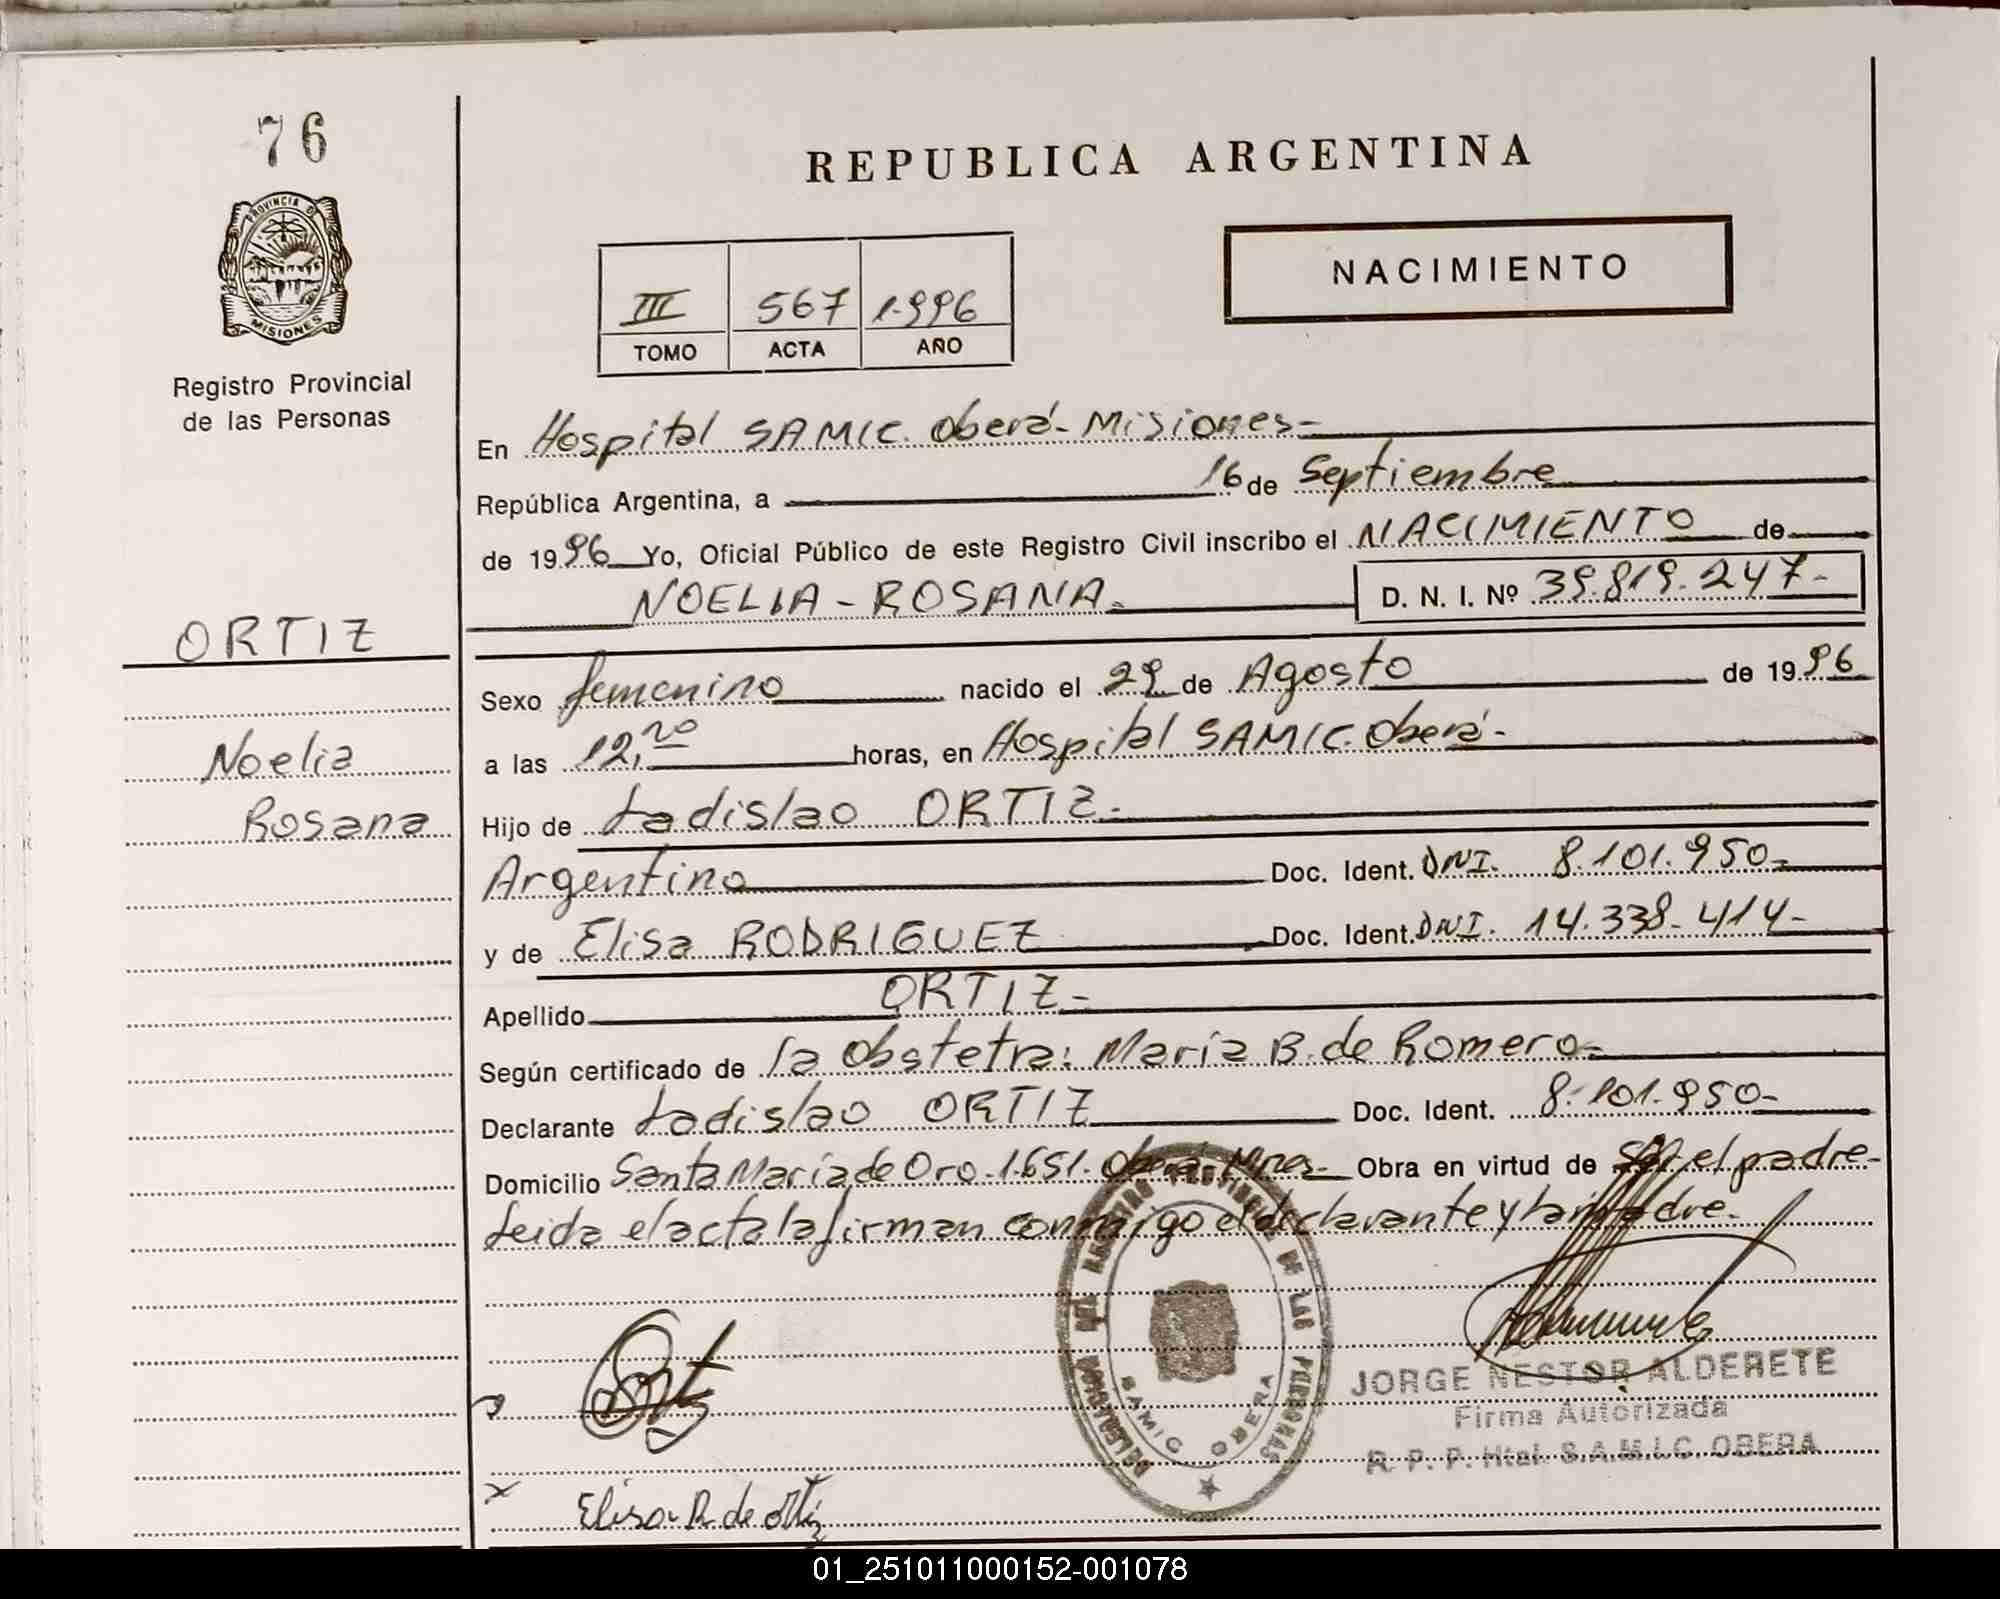 76
PROVINCIA DE
MISIONES
Registro Provincial
de las Personas
ORTIZ
Noelia
Rosana
REPUBLICA ARGENTINA
III 567 1.996
TOMO ACTA AÑO
NACIMIENTO
En Hospital SAMIC. Oberá - Misiones -
República Argentina, a 16 de Septiembre
de 1996 Yo, Oficial Público de este Registro Civil inscribo el NACIMIENTO de
NOELIA - ROSANA. D. N. I. Nº 39.819.247-
Sexo femenino nacido el 29 de Agosto de 1996
a las 12,20 horas, en Hospital SAMIC. Oberá -
Hijo de Ladislao ORTIZ -
Argentino Doc. Ident. DNI. 8.101.950-
y de Elisa RODRIGUEZ Doc. Ident. DNI. 14.338.414-
Apellido ORTIZ -
Según certificado de la Obstetra: María B. de Romero -
Declarante Ladislao ORTIZ Doc. Ident. 8.101.950-
Domicilio Santa María de Oro - 1.651. Oberá - Mnes - Obra en virtud de ser el padre -
Leida el acta la firman conmigo el declarante y la madre -
REGISTRO PROVINCIAL DE LAS PERSONAS
SAMIC OBERA
JORGE NESTOR ALDERETE
Firma Autorizada
R. P. P. Htal. S.A.M.I.C. OBERA
Elisa R. de Ortiz
01_251011000152-001078